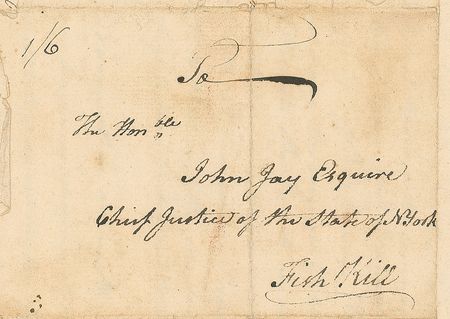 1/6
To
The Honble
John Jay Esquire
Chief Justice of the State of NYork
Fish Kill